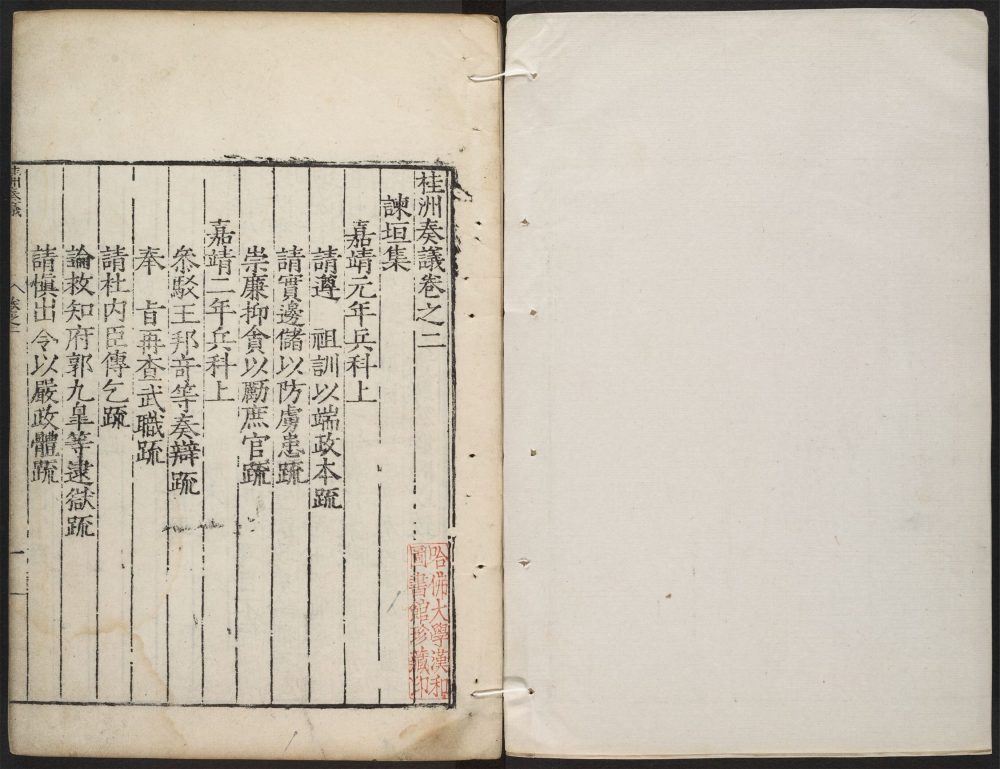 桂洲奏議卷之二
諫垣集
嘉靖元年兵科上
請遵 祖訓以端政本疏
請實邊儲以防虜患疏
崇廉抑貪以勵庶官疏
嘉靖二年兵科上
叅駁王邦竒等奏辯疏
奉 旨再查武職疏
請杜内臣傳乞疏
論救知府郭九臯等逮獄疏
請慎出令以嚴政體疏
桂洲奏議
卷之二
一
哈佛大學漢和
圖書館珍藏印